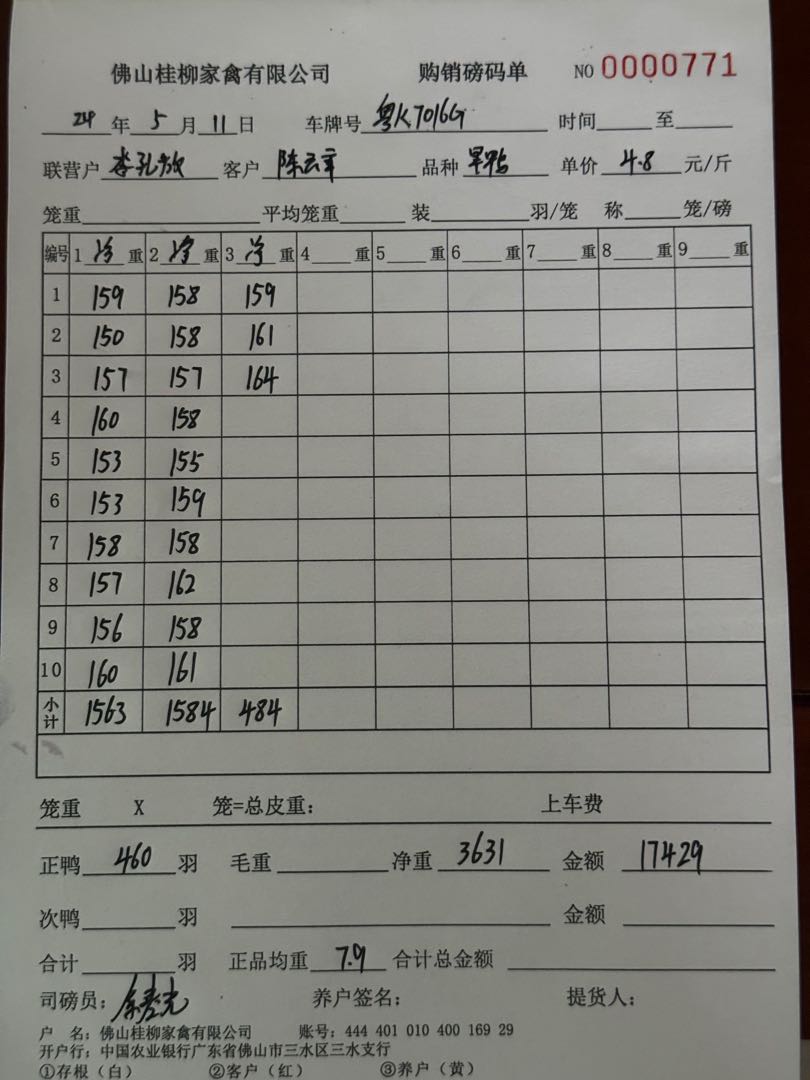 佛山桂柳家禽有限公司 购销磅码单 NO 0000771
24 年 5 月 11 日 车牌号 粤K7016G 时间 至
联营户 李孔放 客户 陈云章 品种 旱鸭 单价 4.8 元/斤
笼重 平均笼重 装 羽/笼 称 笼/磅
编号 1 净 重 2 净 重 3 净 重 4 重 5 重 6 重 7 重 8 重 9 重
1 159 158 159
2 150 158 161
3 157 157 164
4 160 158
5 153 155
6 153 159
7 158 158
8 157 162
9 156 158
10 160 161
小计 1563 1584 484
笼重 X 笼=总皮重: 上车费
正鸭 460 羽 毛重 净重 3631 金额 17429
次鸭 羽 金额
合计 羽 正品均重 7.9 合计总金额
司磅员: 养户签名: 提货人:
户 名: 佛山桂柳家禽有限公司 账号: 444 401 010 400 169 29
开户行: 中国农业银行广东省佛山市三水区三水支行
①存根(白) ②客户(红) ③养户(黄)